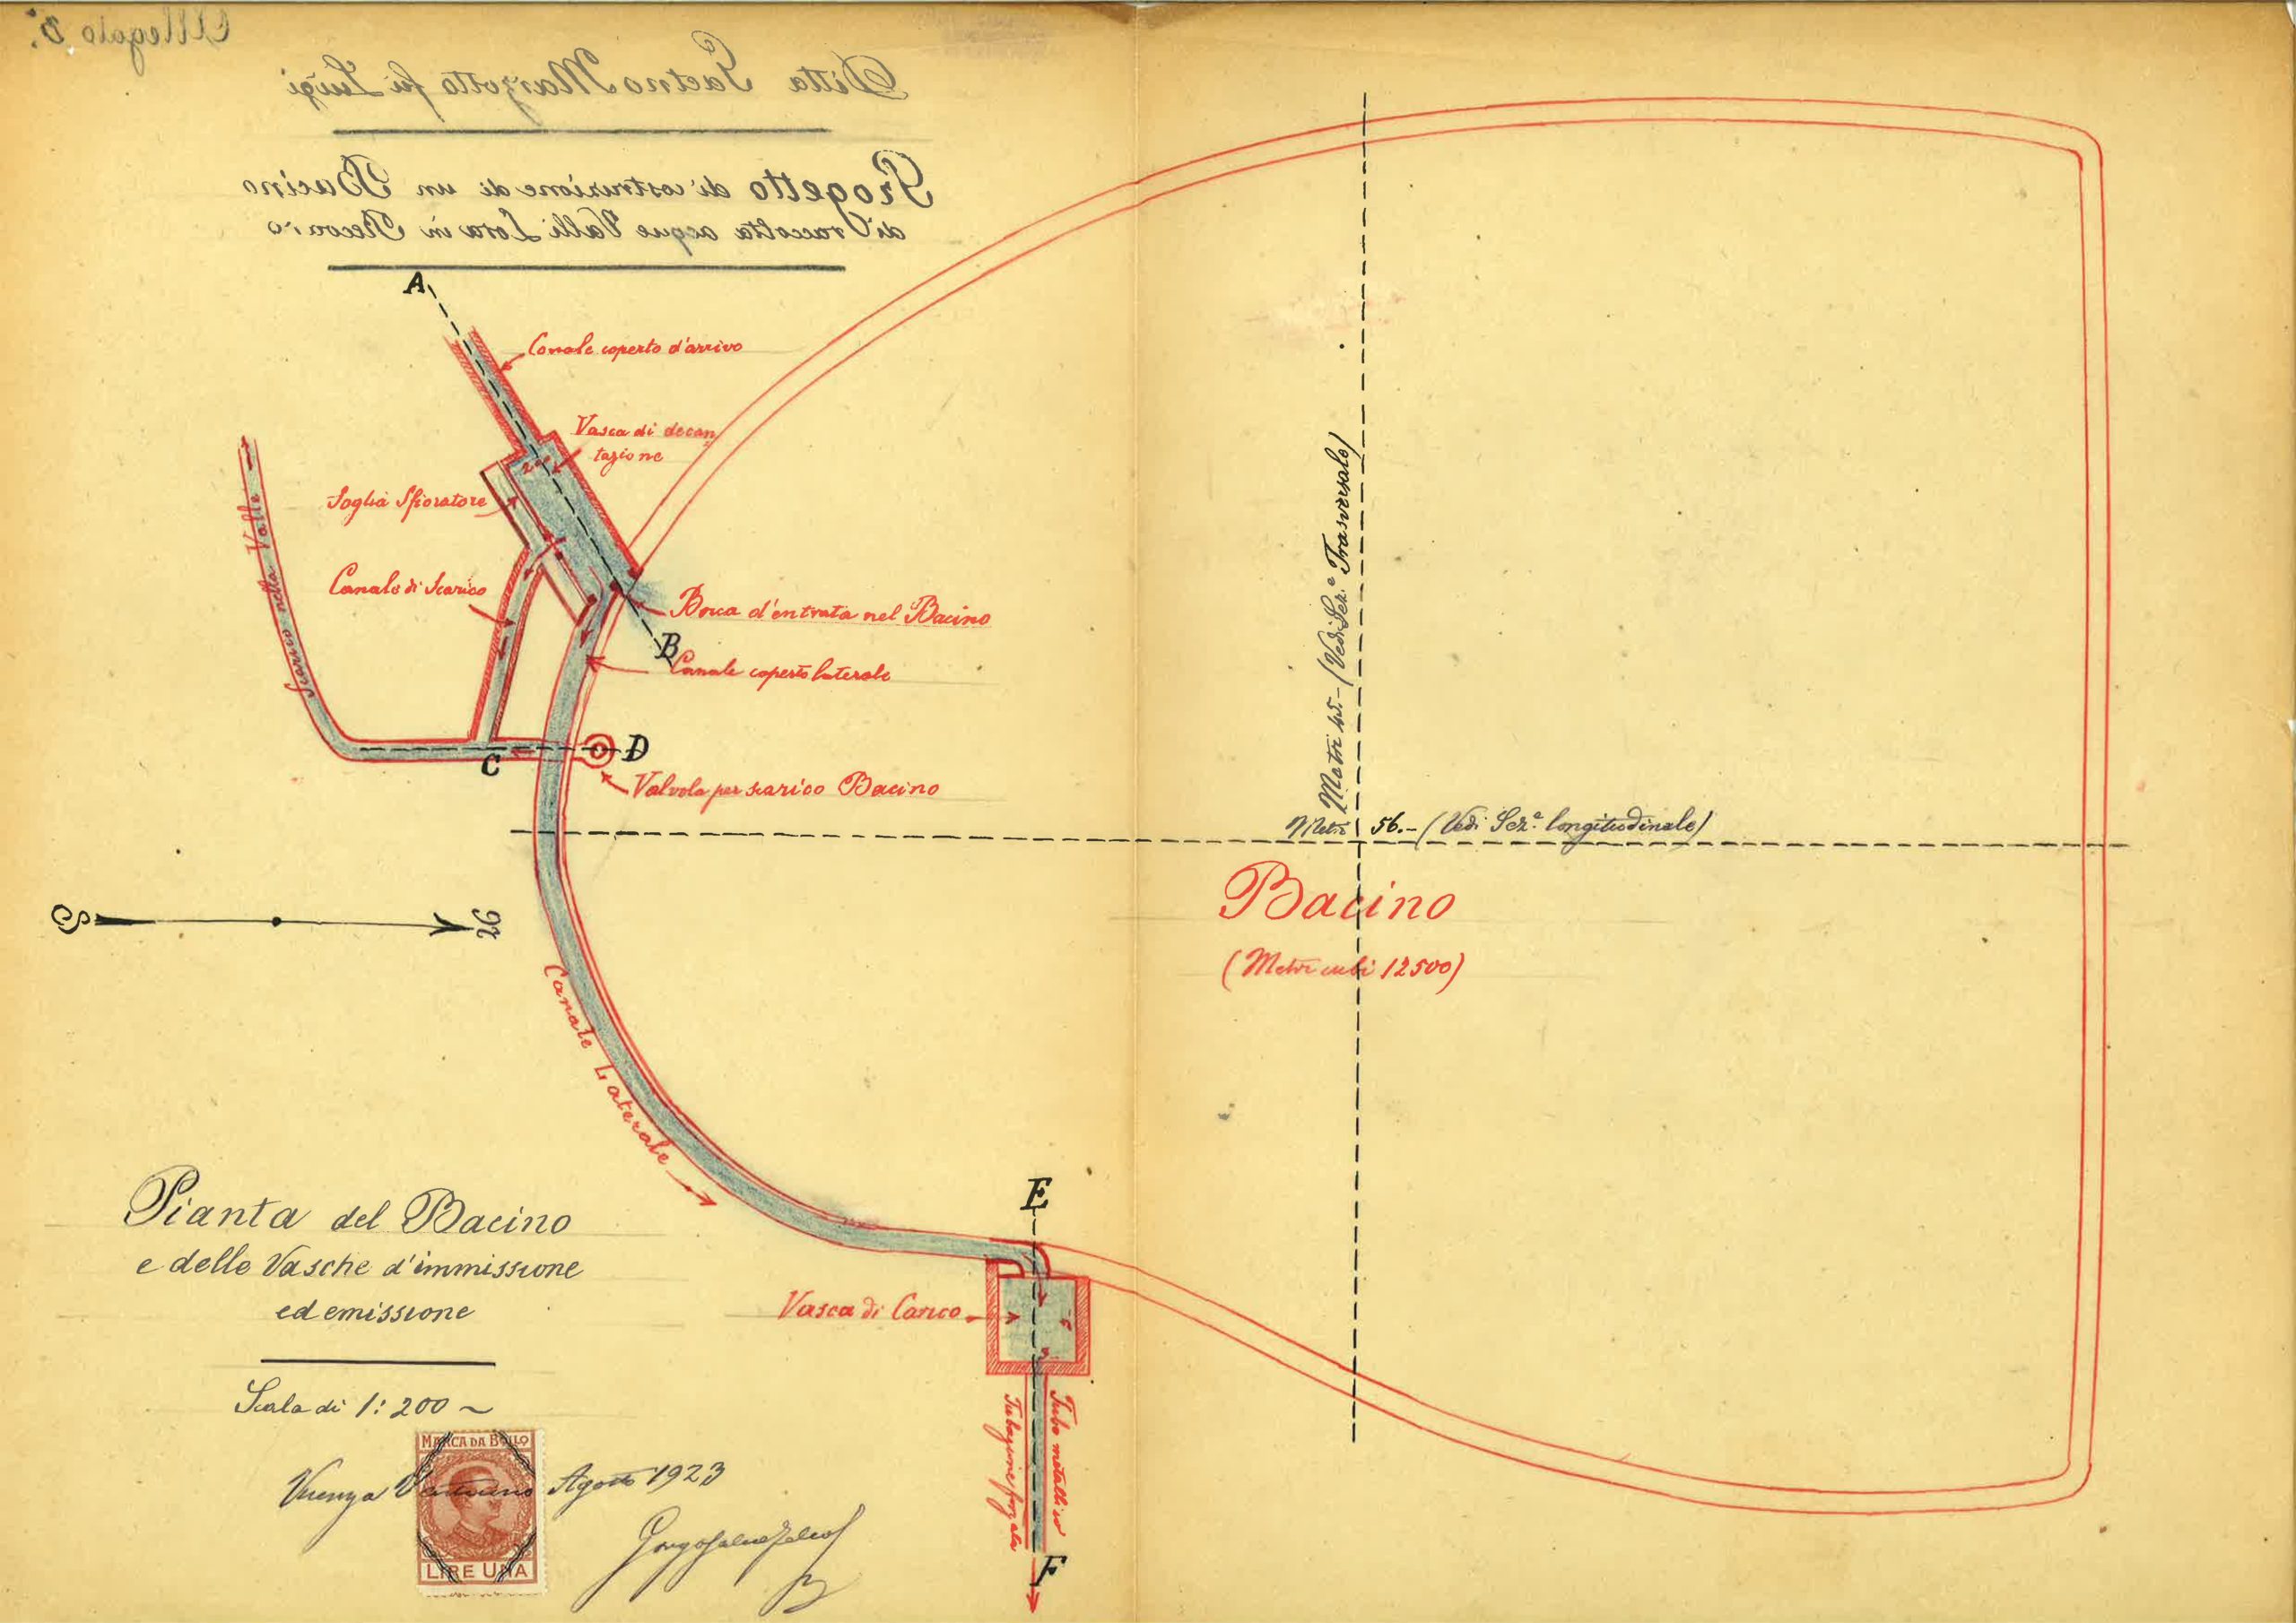 Allegato 3.
Ditta Gaetno Marzotto fu Luigi
Progetto di costruzione di un Bacino
di raccolta acque Valli Lora in Recoaro
A
Canale coperto d'arrivo
Vasca di decan
tazione
Soglia Sfioratore
Scarico nella Valle
Canale di Scarico
Bocca d'entrata nel Bacino
B
Canale coperto laterale
C
D
Valvola per scarico Bacino
Metri 45.- (Vedi Sez.e Trasversale)
Metri 56.- (Vedi Sez.e longitudinale)
Bacino
(Metri cubi 12500)
S
N
Canale Laterale
E
Pianta del Bacino
e delle Vasche d'immissione
ed emissione
Vasca di Carico
Scala di 1:200
Tubazione forzata
Tubo metallico
MARCA DA BOLLO
Agosto 1923
LIRE UNA
F